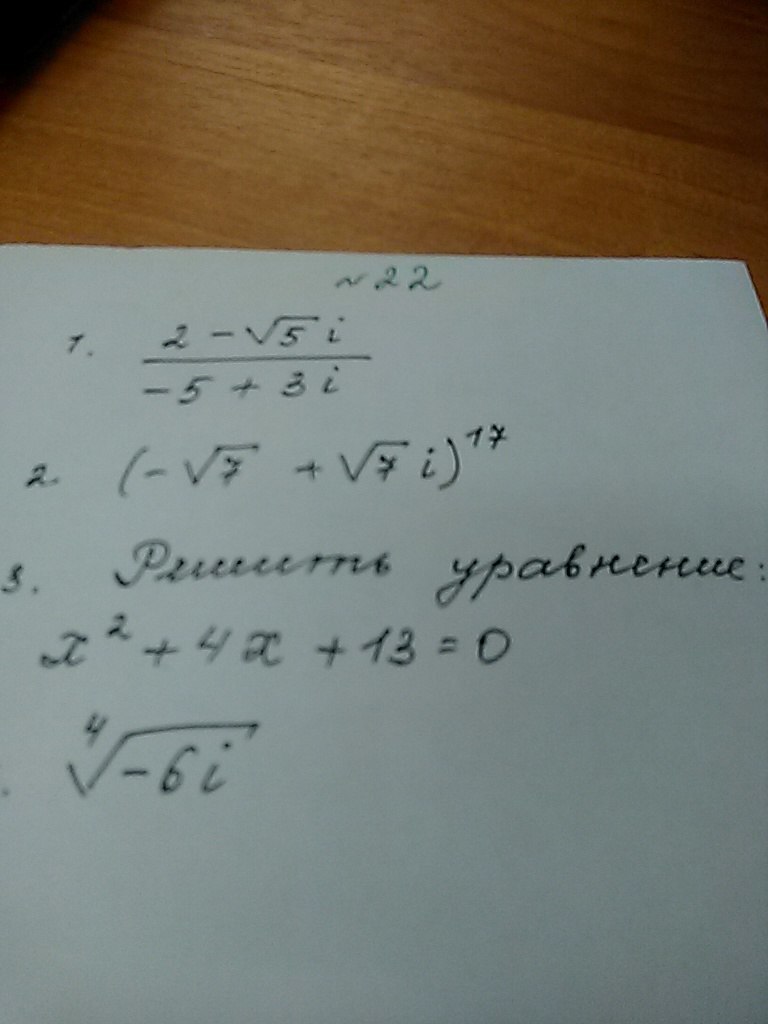 №22
1. \frac{2 - \sqrt{5} i}{-5 + 3i}
2. (-\sqrt{7} + \sqrt{7} i)^{17}
3. Решить уравнение:
x^2 + 4x + 13 = 0
. \sqrt[4]{-6i}